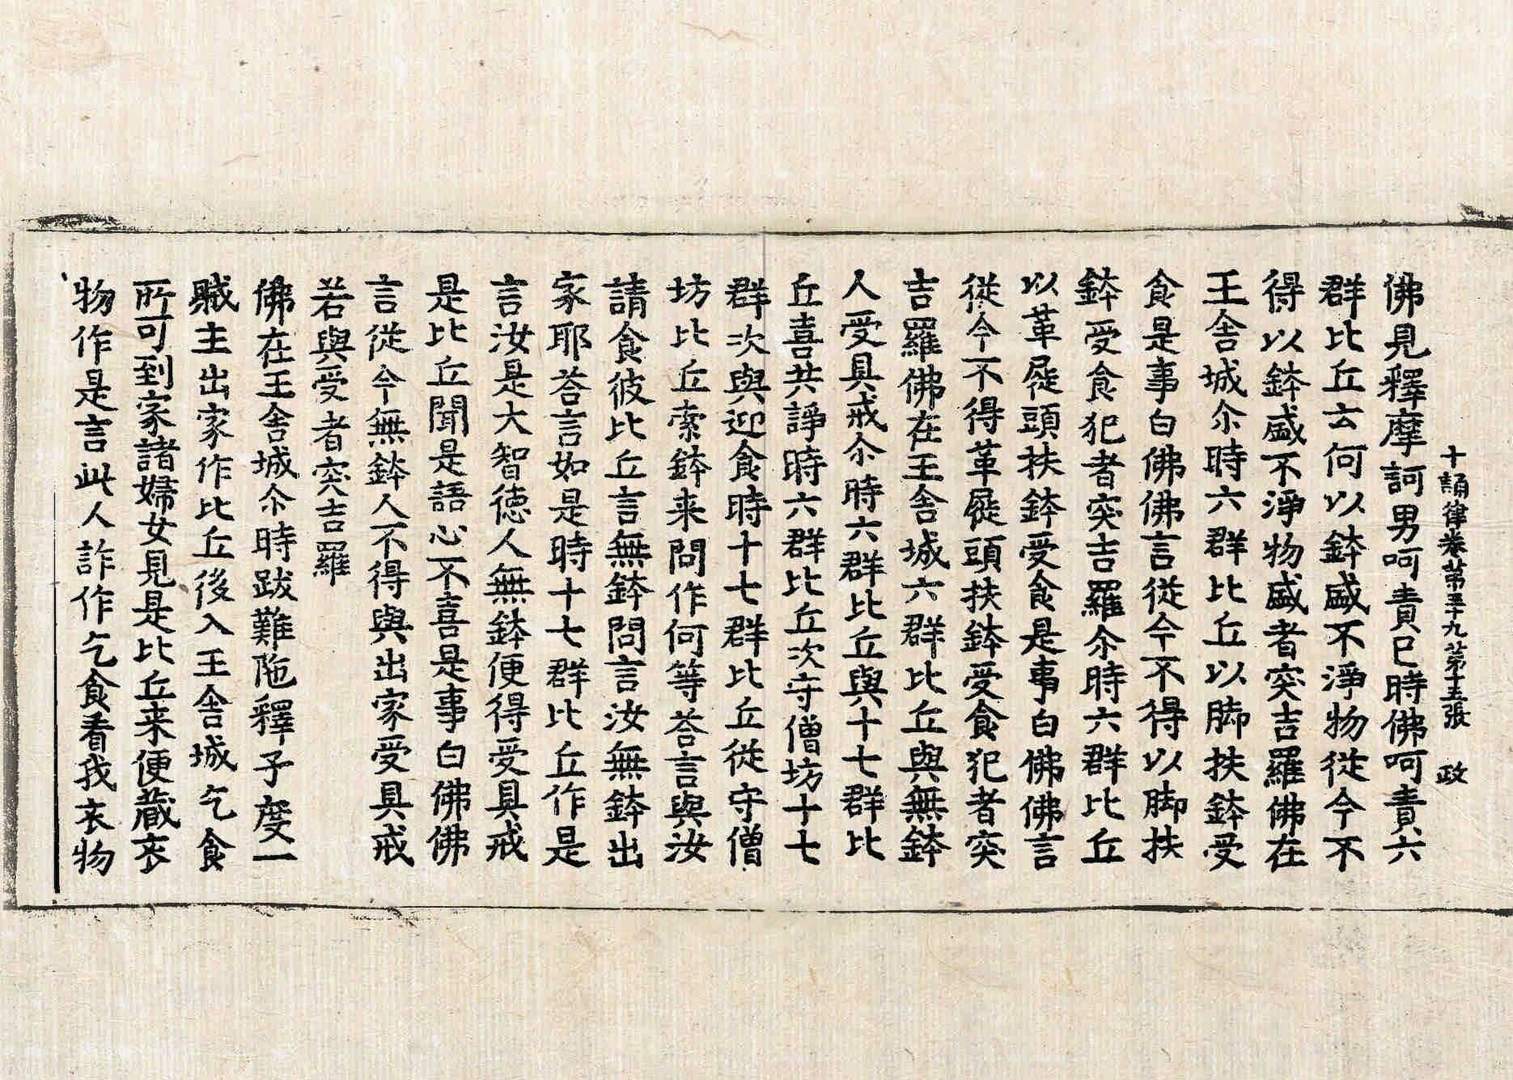 十誦律卷第五十九 第十五張 政
佛見釋摩訶男呵責已時佛呵責六
群比丘云何以鉢盛不淨物從今不
得以鉢盛不淨物盛者突吉羅佛在
王舍城尒時六群比丘以脚扶鉢受
食是事白佛佛言從今不得以脚扶
鉢受食犯者突吉羅尒時六群比丘
以革屣頭扶鉢受食是事白佛佛言
從今不得革屣頭扶鉢受食犯者突
吉羅佛在王舍城六群比丘與無鉢
人受具戒尒時六群比丘與十七群比
丘喜共諍時六群比丘次守僧坊十七
群次與迎食時十七群比丘從守僧
坊比丘索鉢来問作何等荅言與汝
請食彼比丘言無鉢問言汝無鉢出
家耶荅言如是時十七群比丘作是
言汝是大智德人無鉢便得受具戒
是比丘聞是語心不喜是事白佛佛
言從今無鉢人不得與出家受具戒
若與受者突吉羅
佛在王舍城尒時跋難陁釋子度一
賊主出家作比丘後入王舍城乞食
所可到家諸婦女見是比丘来便藏衣
物作是言此人詐作乞食看我衣物